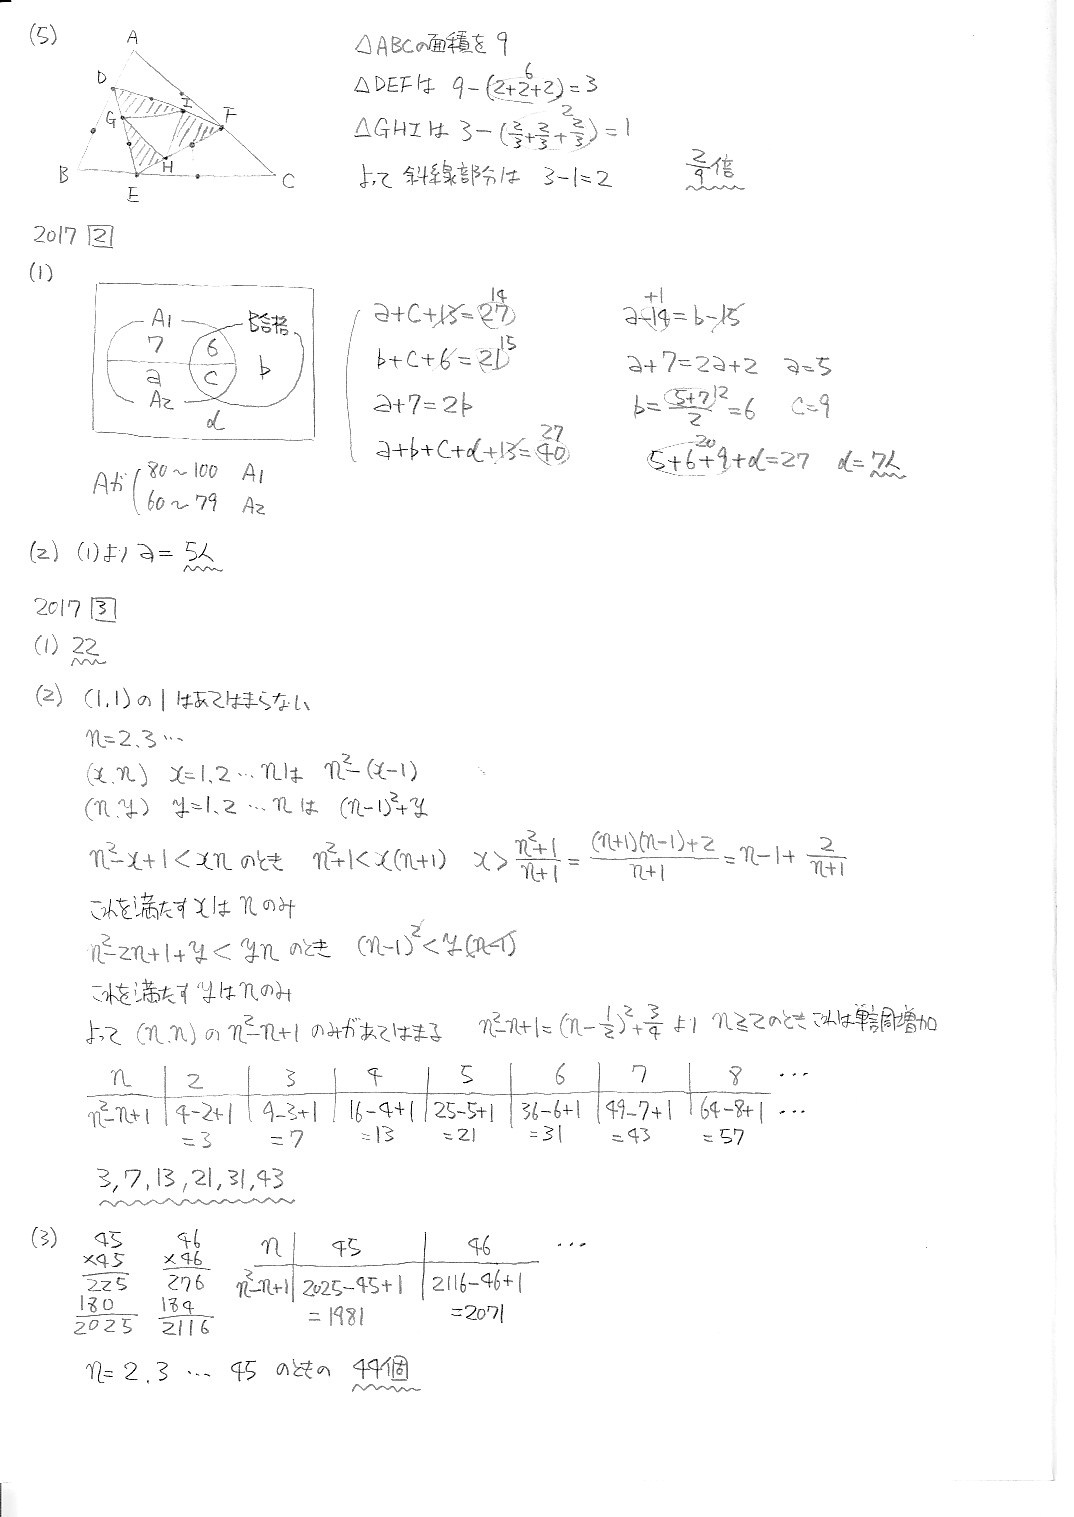 (5)
A
D
I
F
G
H
B
E
C
△ABCの面積を 9
△DEFは 9-(2+2+2)=3
6
△GHIは 3-(2/3+2/3+2/3)=1
2
よって 斜線部分は 3-1=2
2/9倍
2017 2
(1)
A1
B合格
7
6
a
c
b
A2
d
Aが
80〜100 A1
60〜79 A2
a+c+13=27
14
b+c+6=21
15
a+7=2b
a+b+c+d+13=40
27
a-14=b-15
+1
a+7=2a+2 a=5
b=(5+7)/2=6 c=9
12
5+6+9+d=27 d=7人
20
(2) (1)より a= 5人
2017 3
(1) 22
(2) (1,1)の1はあてはまらない
n=2.3…
(x.n) x=1.2…nは n²-(x-1)
(n.y) y=1.2…nは (n-1)²+y
n²-x+1<xn のとき n²+1<x(n+1) x>(n²+1)/(n+1)=((n+1)(n-1)+2)/(n+1)=n-1+2/(n+1)
これを満たすxはnのみ
n²-2n+1+y<yn のとき (n-1)²<y(n-1)
これを満たすyはnのみ
よって (n.n)のn²-n+1のみがあてはまる n²-n+1=(n-1/2)²+3/4 より n≧2のときこれは単調増加
n 2 3 4 5 6 7 8 …
n²-n+1 4-2+1 9-3+1 16-4+1 25-5+1 36-6+1 49-7+1 64-8+1 …
=3 =7 =13 =21 =31 =43 =57
3,7,13,21,31,43
(3)
45
×45
225
180
2025
46
×46
276
184
2116
n 45 46 …
n²-n+1 2025-45+1 2116-46+1
=1981 =2071
n=2.3 … 45 のときの 44個